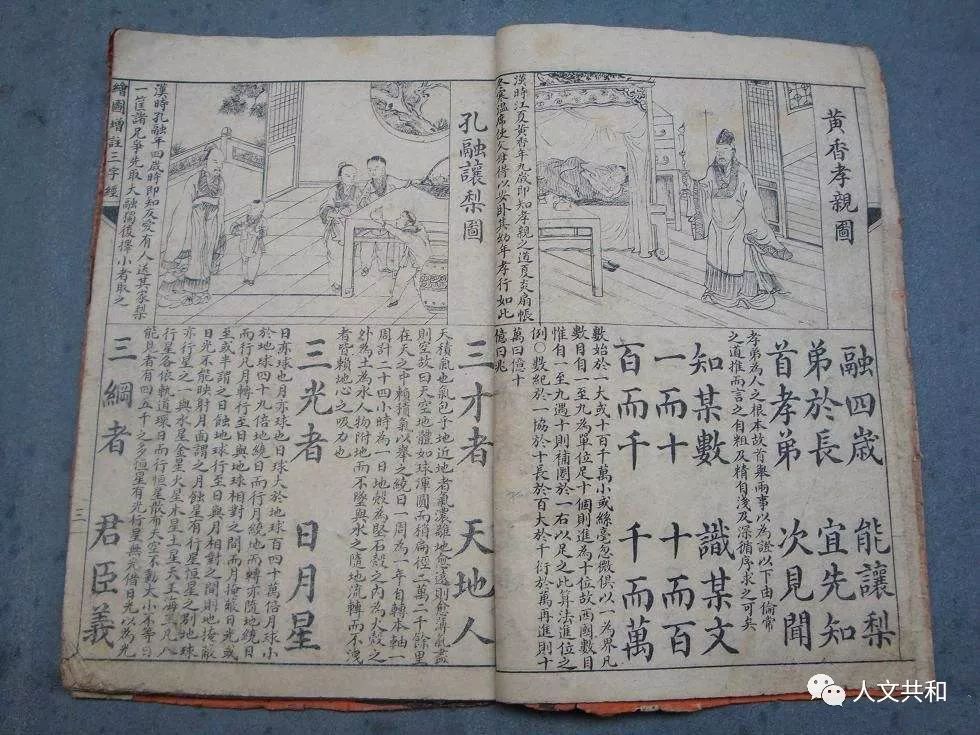 黃香孝親圖
漢時江夏黃香年九歲即知孝親之道夏炎扇帳
冬寒溫席使父母得以安卧其幼年孝行如此
融四歲 能讓梨
弟於長 宜先知
首孝弟 次見聞
孝弟為人之根本故首舉兩事以為證以下由倫常
之道推而言之自粗及精自淺及深循序求之可矣
知某數 識某文
一而十 十而百
百而千 千而萬
數始於一大或十百千萬小或絲毫忽微俱以一為界凡
數目自一至九為單位足十個則進為十位故西國數目
惟自一至九遇十則補圈於一右以足之此算法進位之
例○數紀於一協於十長於百大於千衍於萬再進則十
萬曰億十
億曰兆
孔融讓梨圖
漢時孔融年四歲時即知友愛有人送其家梨
一筐諸兄爭先取大融獨後擇小者取之
繪圖增註三字經
三才者 天地人
天積氣也氣包乎地近地者氣濃離地愈遠則愈薄氣盡
則空故曰天空地體如球渾圓而稍扁徑二萬二千餘里
在天之中賴積氣以舉之繞日一周為一年自轉本軸一
周計二十四小時為一日地殼為堅石殼之內為火殼之
外為土為水人物附地而不墜與水之隨地流轉而不洩
者皆賴地心之吸力也
三光者 日月星
日亦球也月亦球也日球大於地球百四十萬倍月球小
於地球四十九倍地繞日而行月繞地而轉亦隨地繞日
而行凡月轉行至日與地球相對之間而月掩蔽日光或
至或半謂之日蝕地球行至日與月相對之間則地掩蔽
日光不能映射月面謂之月蝕星有行星恒星之別地球
亦行星之一與水星金星火星木星土星天王海王凡八
行星各依軌道環日而行恒星散布天空不動大小不等目
能見者有四五千之多恒星有光行星無光借日光以為光
三綱者 君臣義
三
人文共和